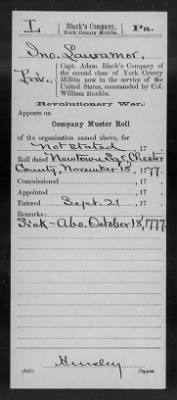 L
Black's Company,
York County Militia.
Pa.
Jno. Lawramor,
Pvt.,
Capt. Adam Black's Company of
the second class of York County
Militia now in the service of the
United States, commanded by Col.
William Rankin.
Revolutionary War.
Appears on
Company Muster Roll
of the organization named above, for
Not stated, 17
Roll dated Newtown Sqr Chester
County, November 18, 1777.
Commissioned , 17 .
Appointed , 17 .
Entered Sept. 21 , 17 .
Remarks:
Sick - Abs. October 18, 1777
Copyist.